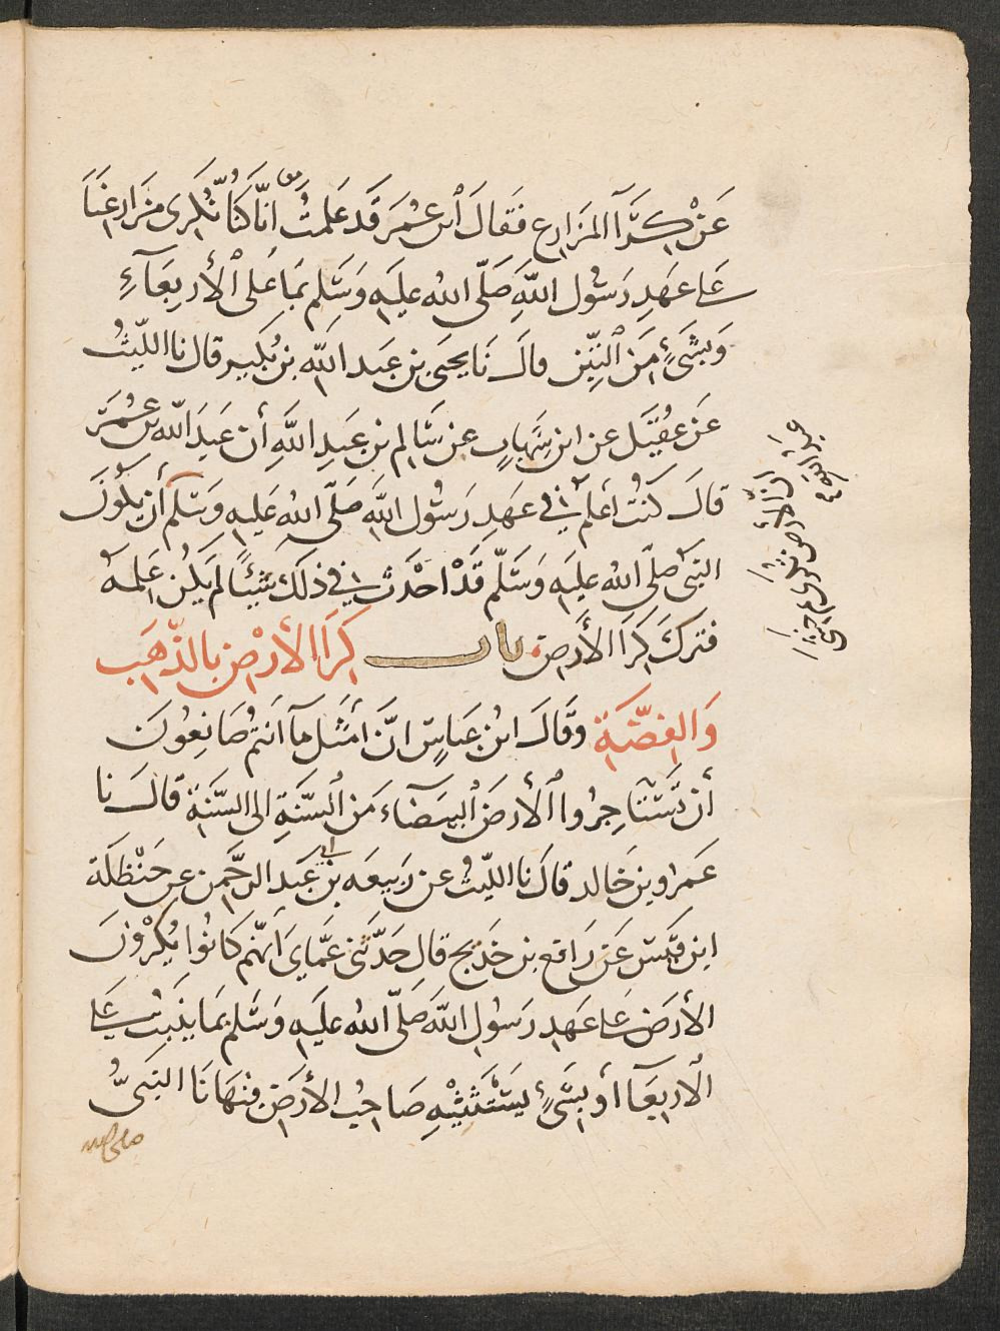 عَنْ كِرَآ المَزَارِع فَقَالَ ابن عُمَرَ قَد عَلمتُ انَّا كنَّا نُكرى مزَارعَنَا
عَلى عَهدِ رَسُول اللهِ صَلّى الله عليَه وَسَلم بمَا عَلى الأربعَآءِ
وَبشَىءٍ مَن التِبْن قالَ نَا يحيَى بن عَبد الله بن بُكَير قال نا الليّثُ
عَن عُقيَل عن ابن شهَابٍ عن سَالم بن عَبدِ اللَّهِ أن عَبدَ اللّه بن عُمَرَ
قالَ كنتُ أعلم في عَهدِ رَسُول اللهَ صَلّى اللهُ عَليهِ وَسَلّم أن
عبد اللهِ
ان الأرض تكرى ثم خشى
يكونَ
النبى صَلّى الله عليَهِ وَسَلّم قَدْ احْدَث في ذلكَ شيئًا لم يَكُن عَلِمهُ
فتركَ كرَا الأرَض باب كرَا الأرْض بالذّهَب
وَالفضّةِ وقَالَ ابْن عَباسٍ انَّ أمثَل مَآ أنتُم صَانِعُونَ
أن تَستَاجِرُوا الأرضَ البيضَاءَ مَن السَّنَةِ الى السَّنةِ قالَ نَا
عَمرُو بن خَالد قاَل نا الليّثُ عن رَبيعَه بن أبى عَبد الرحَّمن عن حَنْظلَة
ابن قيَس عَن رَافع بن خَديج قال حَدَّثنى عمَّاىَ انَهّم كانُوا يُكْرُونَ
الأرَض عَلى عَهدِ رَسُولِ اللهَ صَلّى اللهُ عليَهِ وَسَلم بمَا ينبُت عَلى
الاربعَآ أو بشَىءٍ يَستَثنيْهِ صَاحبُ الأرَض فنهَانَا النبَىُّ
صلى الله